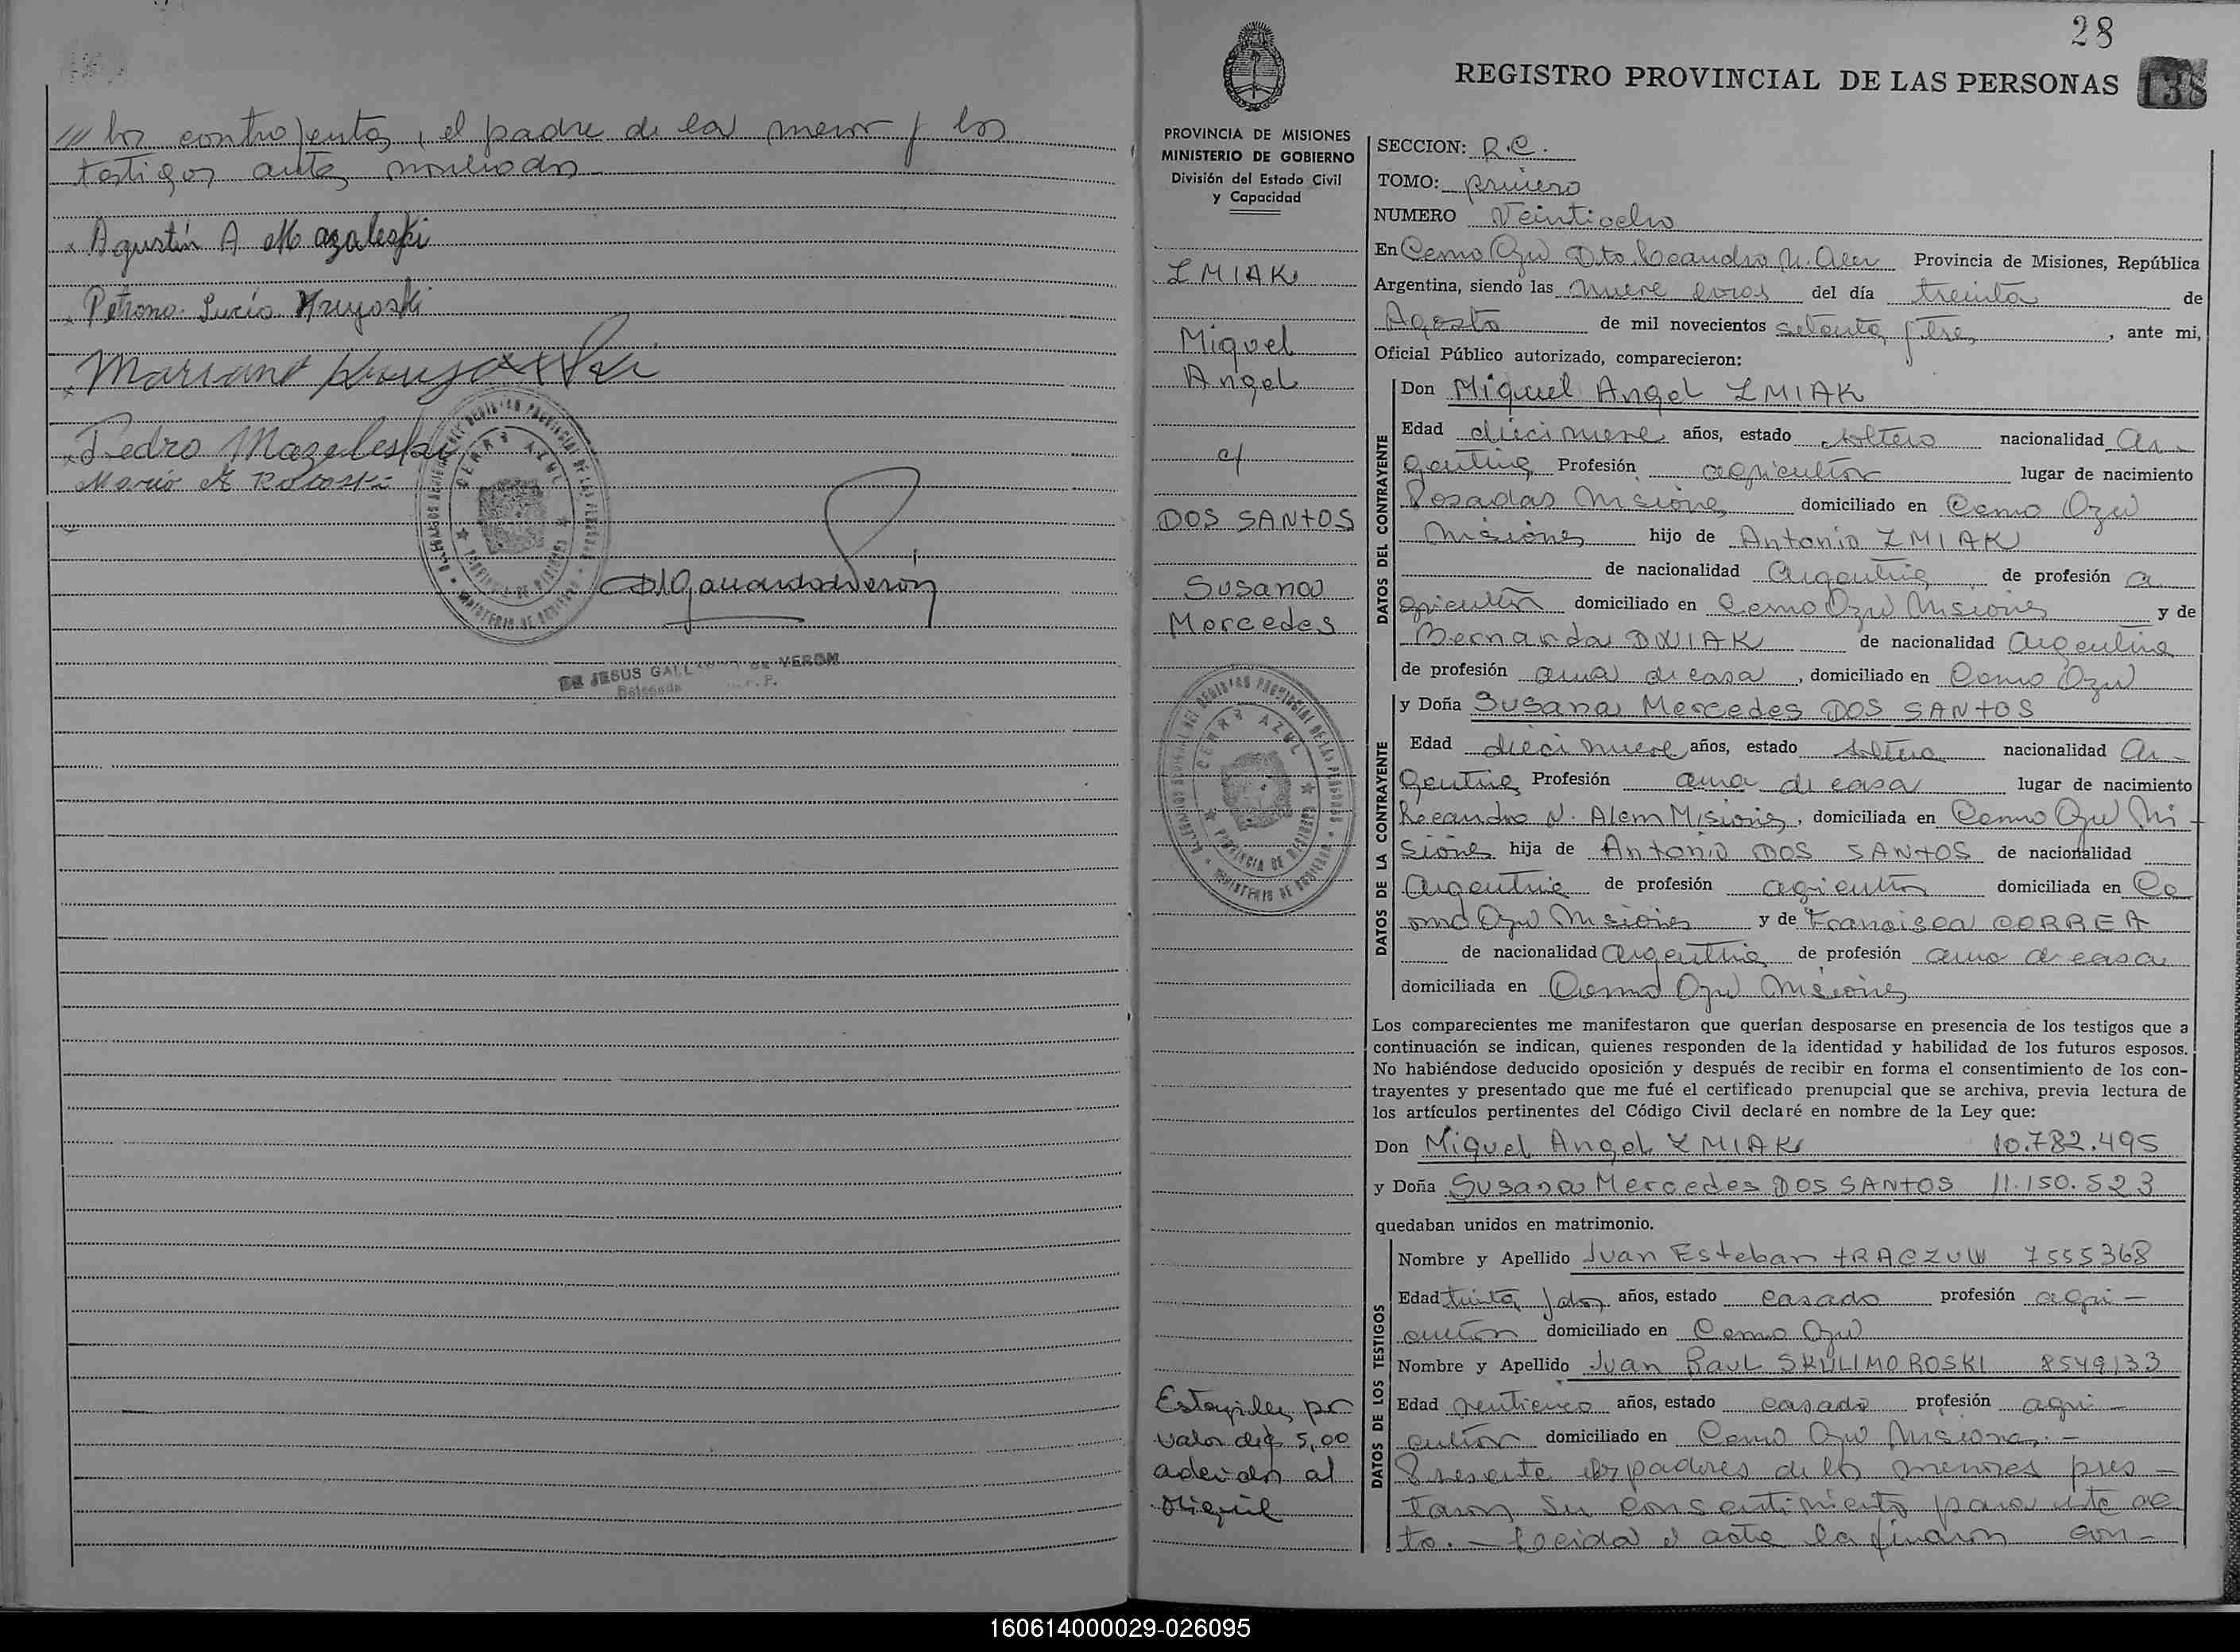 /// los contrayentes, el padre de la menor y los
testigos antes nombrados
Agustín A Mazaleski
Petrona Lucía Kruyoski
Mariano
Pedro Mazaleski
Mario A Rotoski
CERRO AZUL
PROVINCIA DE MISIONES
DE JESUS GALL DE VERON
28
REGISTRO PROVINCIAL DE LAS PERSONAS 138
PROVINCIA DE MISIONES
MINISTERIO DE GOBIERNO
División del Estado Civil
y Capacidad
ZMIAK
Miguel
Angel
c/
DOS SANTOS
Susana
Mercedes
CERRO AZUL
PROVINCIA DE MISIONES
Estampillas por
valor de $ 5,00
adheridas al
SECCION: R.C.
TOMO: primero
NUMERO Veintiocho
En Cerro Azul Dto. Leandro N. Alem Provincia de Misiones, República
Argentina, siendo las nueve horas del día treinta de
Agosto de mil novecientos setenta y tres, ante mi,
Oficial Público autorizado, comparecieron:
DATOS DEL CONTRAYENTE
Don Miguel Angel ZMIAK
Edad diecinueve años, estado soltero nacionalidad ar-
gentina Profesión agricultor lugar de nacimiento
Posadas Misiones domiciliado en Cerro Azul
Misiones hijo de Antonio ZMIAK
de nacionalidad argentina de profesión a
gricultor domiciliado en Cerro Azul Misiones y de
Bernarda DNIAK de nacionalidad argentina
de profesión ama de casa, domiciliado en Cerro Azul
DATOS DE LA CONTRAYENTE
y Doña Susana Mercedes DOS SANTOS
Edad diecinueve años, estado soltera nacionalidad ar-
gentina Profesión ama de casa lugar de nacimiento
Leandro N. Alem Misiones, domiciliada en Cerro Azul Mi-
siones hija de Antonio DOS SANTOS de nacionalidad
argentina de profesión agricultor domiciliada en Ce
rro Azul Misiones y de Francisca CORREA
de nacionalidad argentina de profesión ama de casa
domiciliada en Cerro Azul Misiones
Los comparecientes me manifestaron que querían desposarse en presencia de los testigos que a
continuación se indican, quienes responden de la identidad y habilidad de los futuros esposos.
No habiéndose deducido oposición y después de recibir en forma el consentimiento de los con-
trayentes y presentado que me fué el certificado prenupcial que se archiva, previa lectura de
los artículos pertinentes del Código Civil declaré en nombre de la Ley que:
Don Miguel Angel ZMIAK 10.782.495
y Doña Susana Mercedes DOS SANTOS 11.150.523
quedaban unidos en matrimonio.
DATOS DE LOS TESTIGOS
Nombre y Apellido Juan Esteban TRACZUW 7555368
Edad treinta y dos años, estado casado profesión agri-
cultor domiciliado en Cerro Azul
Nombre y Apellido Juan Raul SKULIMOROSKI 8549133
Edad veinticinco años, estado casado profesión agri-
cultor domiciliado en Cerro Azul Misiones.-
Presente los padres de los menores pres-
taron su consentimiento para este ac
to.- Leida el acta la firman con-
160614000029-026095